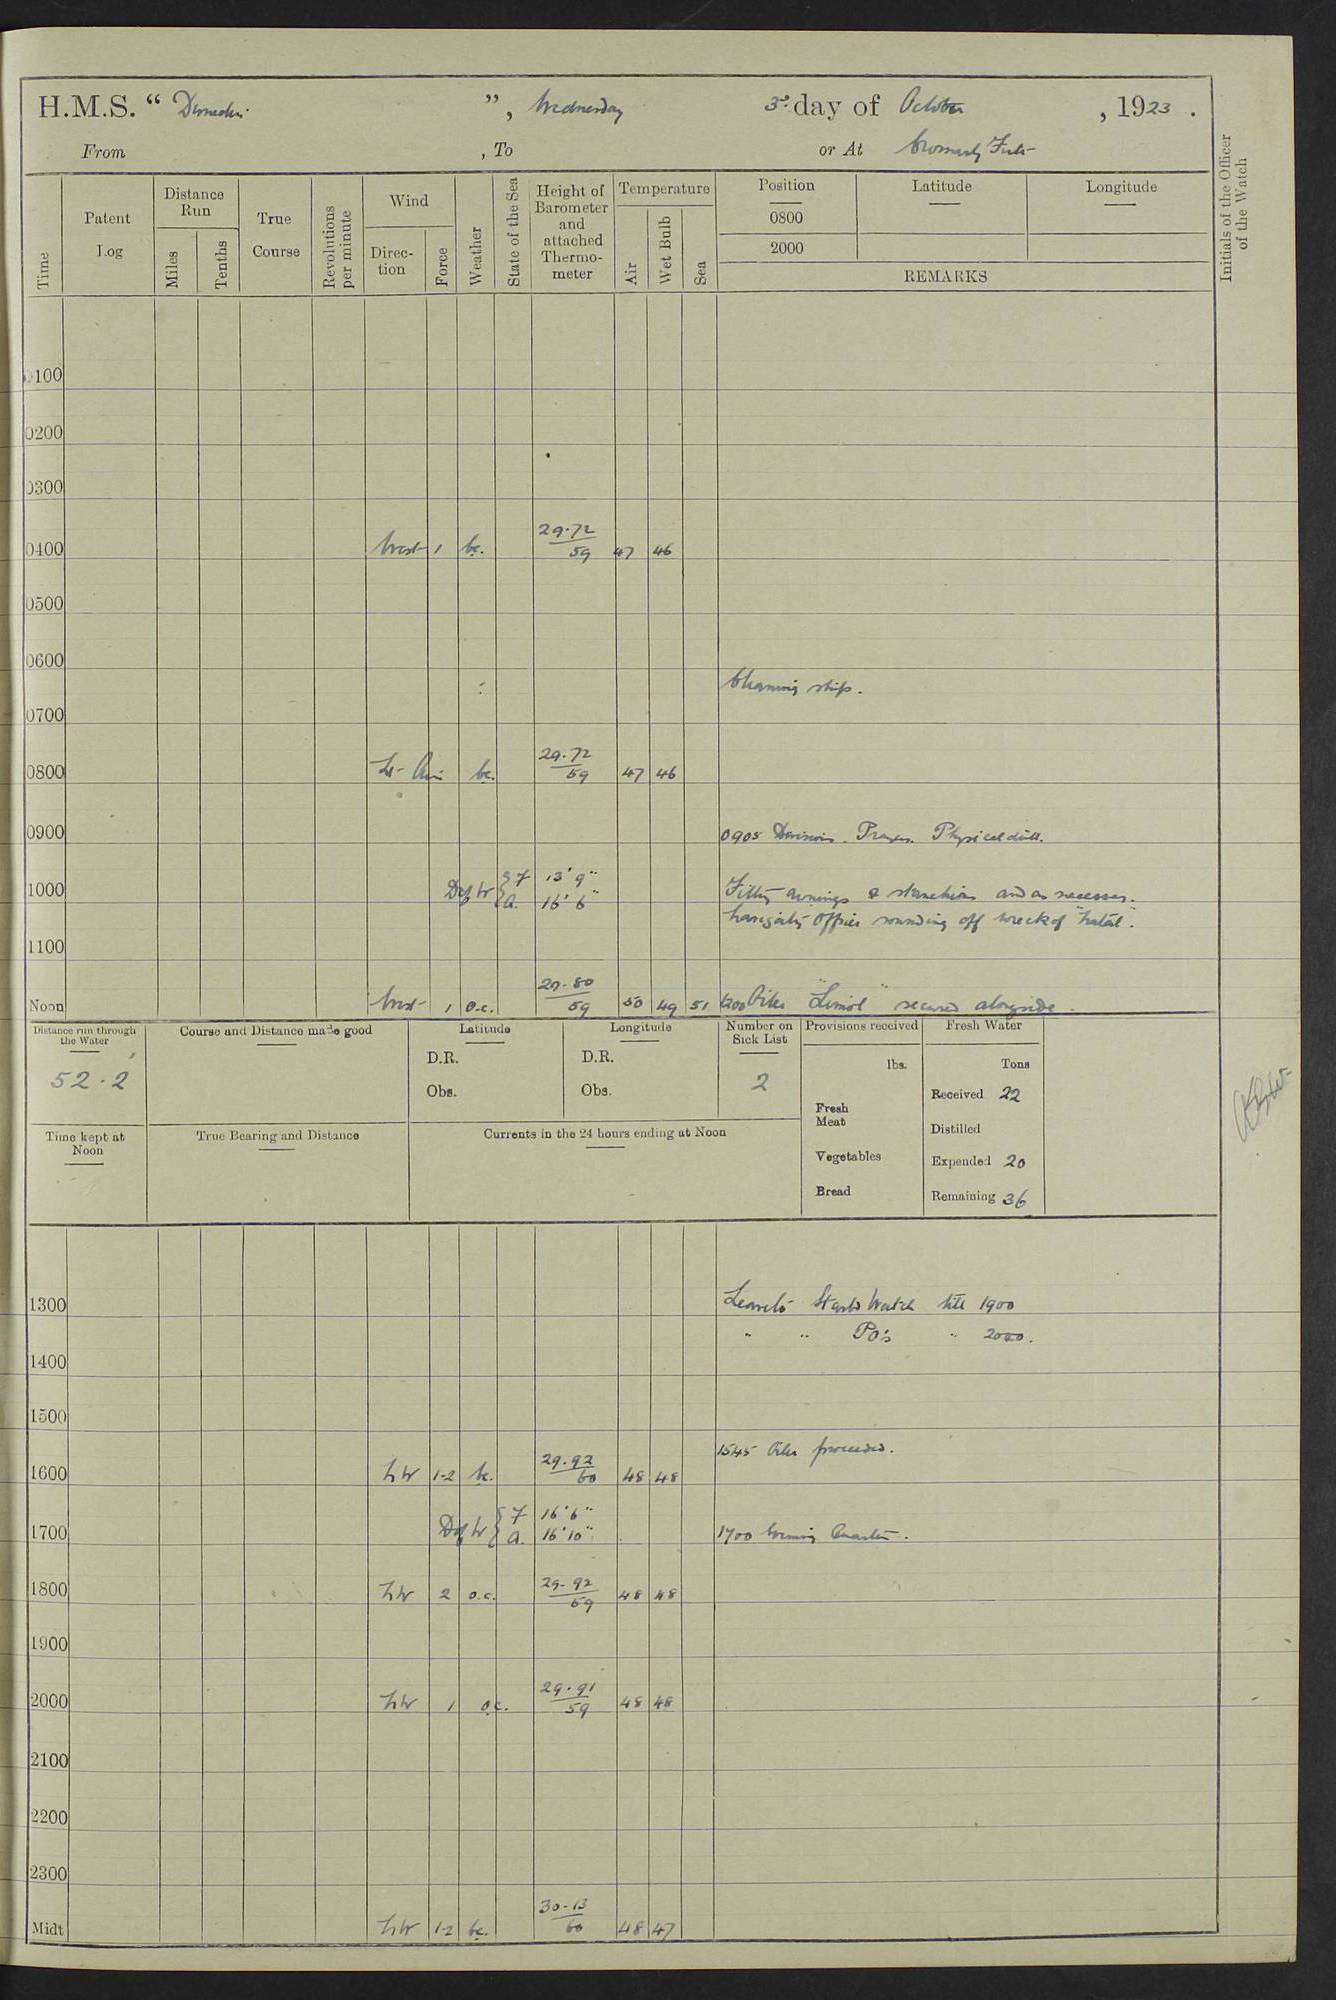 H.M.S. " Dunedin ", Wednesday 3rd day of October, 1923.
From , To or At Cromarty Firth
Time
Patent Log
Distance Run
Miles
Tenths
True Course
Revolutions per minute
Wind
Direction
Force
Weather
State of the Sea
Height of Barometer and attached Thermometer
Temperature
Air
Wet Bulb
Sea
Position
Latitude
Longitude
0800
2000
REMARKS
Initials of the Officer of the Watch
0100
0200
0300
0400 West 1 bc. 29.72/59 47 46
0500
0600
Cleaning ship.
0700
0800 Lt Air bc. 29.72/59 47 46
0900 0905 Divisions. Prayers. Physical drill.
1000 Dft W { F 13' 9" Fitting awnings & stanchions and as necessary.
A. 16' 6" Navigating Officer sounding off wreck of "Natal".
1100
Noon West 1 o.c. 29.80/59 50 49 51 1200 Oiler "Limol" secured alongside.
Distance run through the Water
52.2
Course and Distance made good
Latitude
D.R.
Obs.
Longitude
D.R.
Obs.
Number on Sick List
2
Provisions received
lbs.
Fresh Meat
Vegetables
Bread
Fresh Water
Tons
Received 22
Distilled
Expended 20
Remaining 36
Time kept at Noon
True Bearing and Distance
Currents in the 24 hours ending at Noon
1300 Leave to Starbd Watch till 1900
" " PO's " 2000.
1400
1500
1545 Oiler proceeded.
1600 NW 1-2 bc. 29.92/60 48 48
Dft W { F 16' 6"
1700 A. 16' 10" 1700 Evening Quarters.
1800 NW 2 o.c. 29.92/59 48 48
1900
2000 NW 1 o.c. 29.91/59 48 48
2100
2200
2300
Midt NW 1-2 bc. 30.13/60 48 47